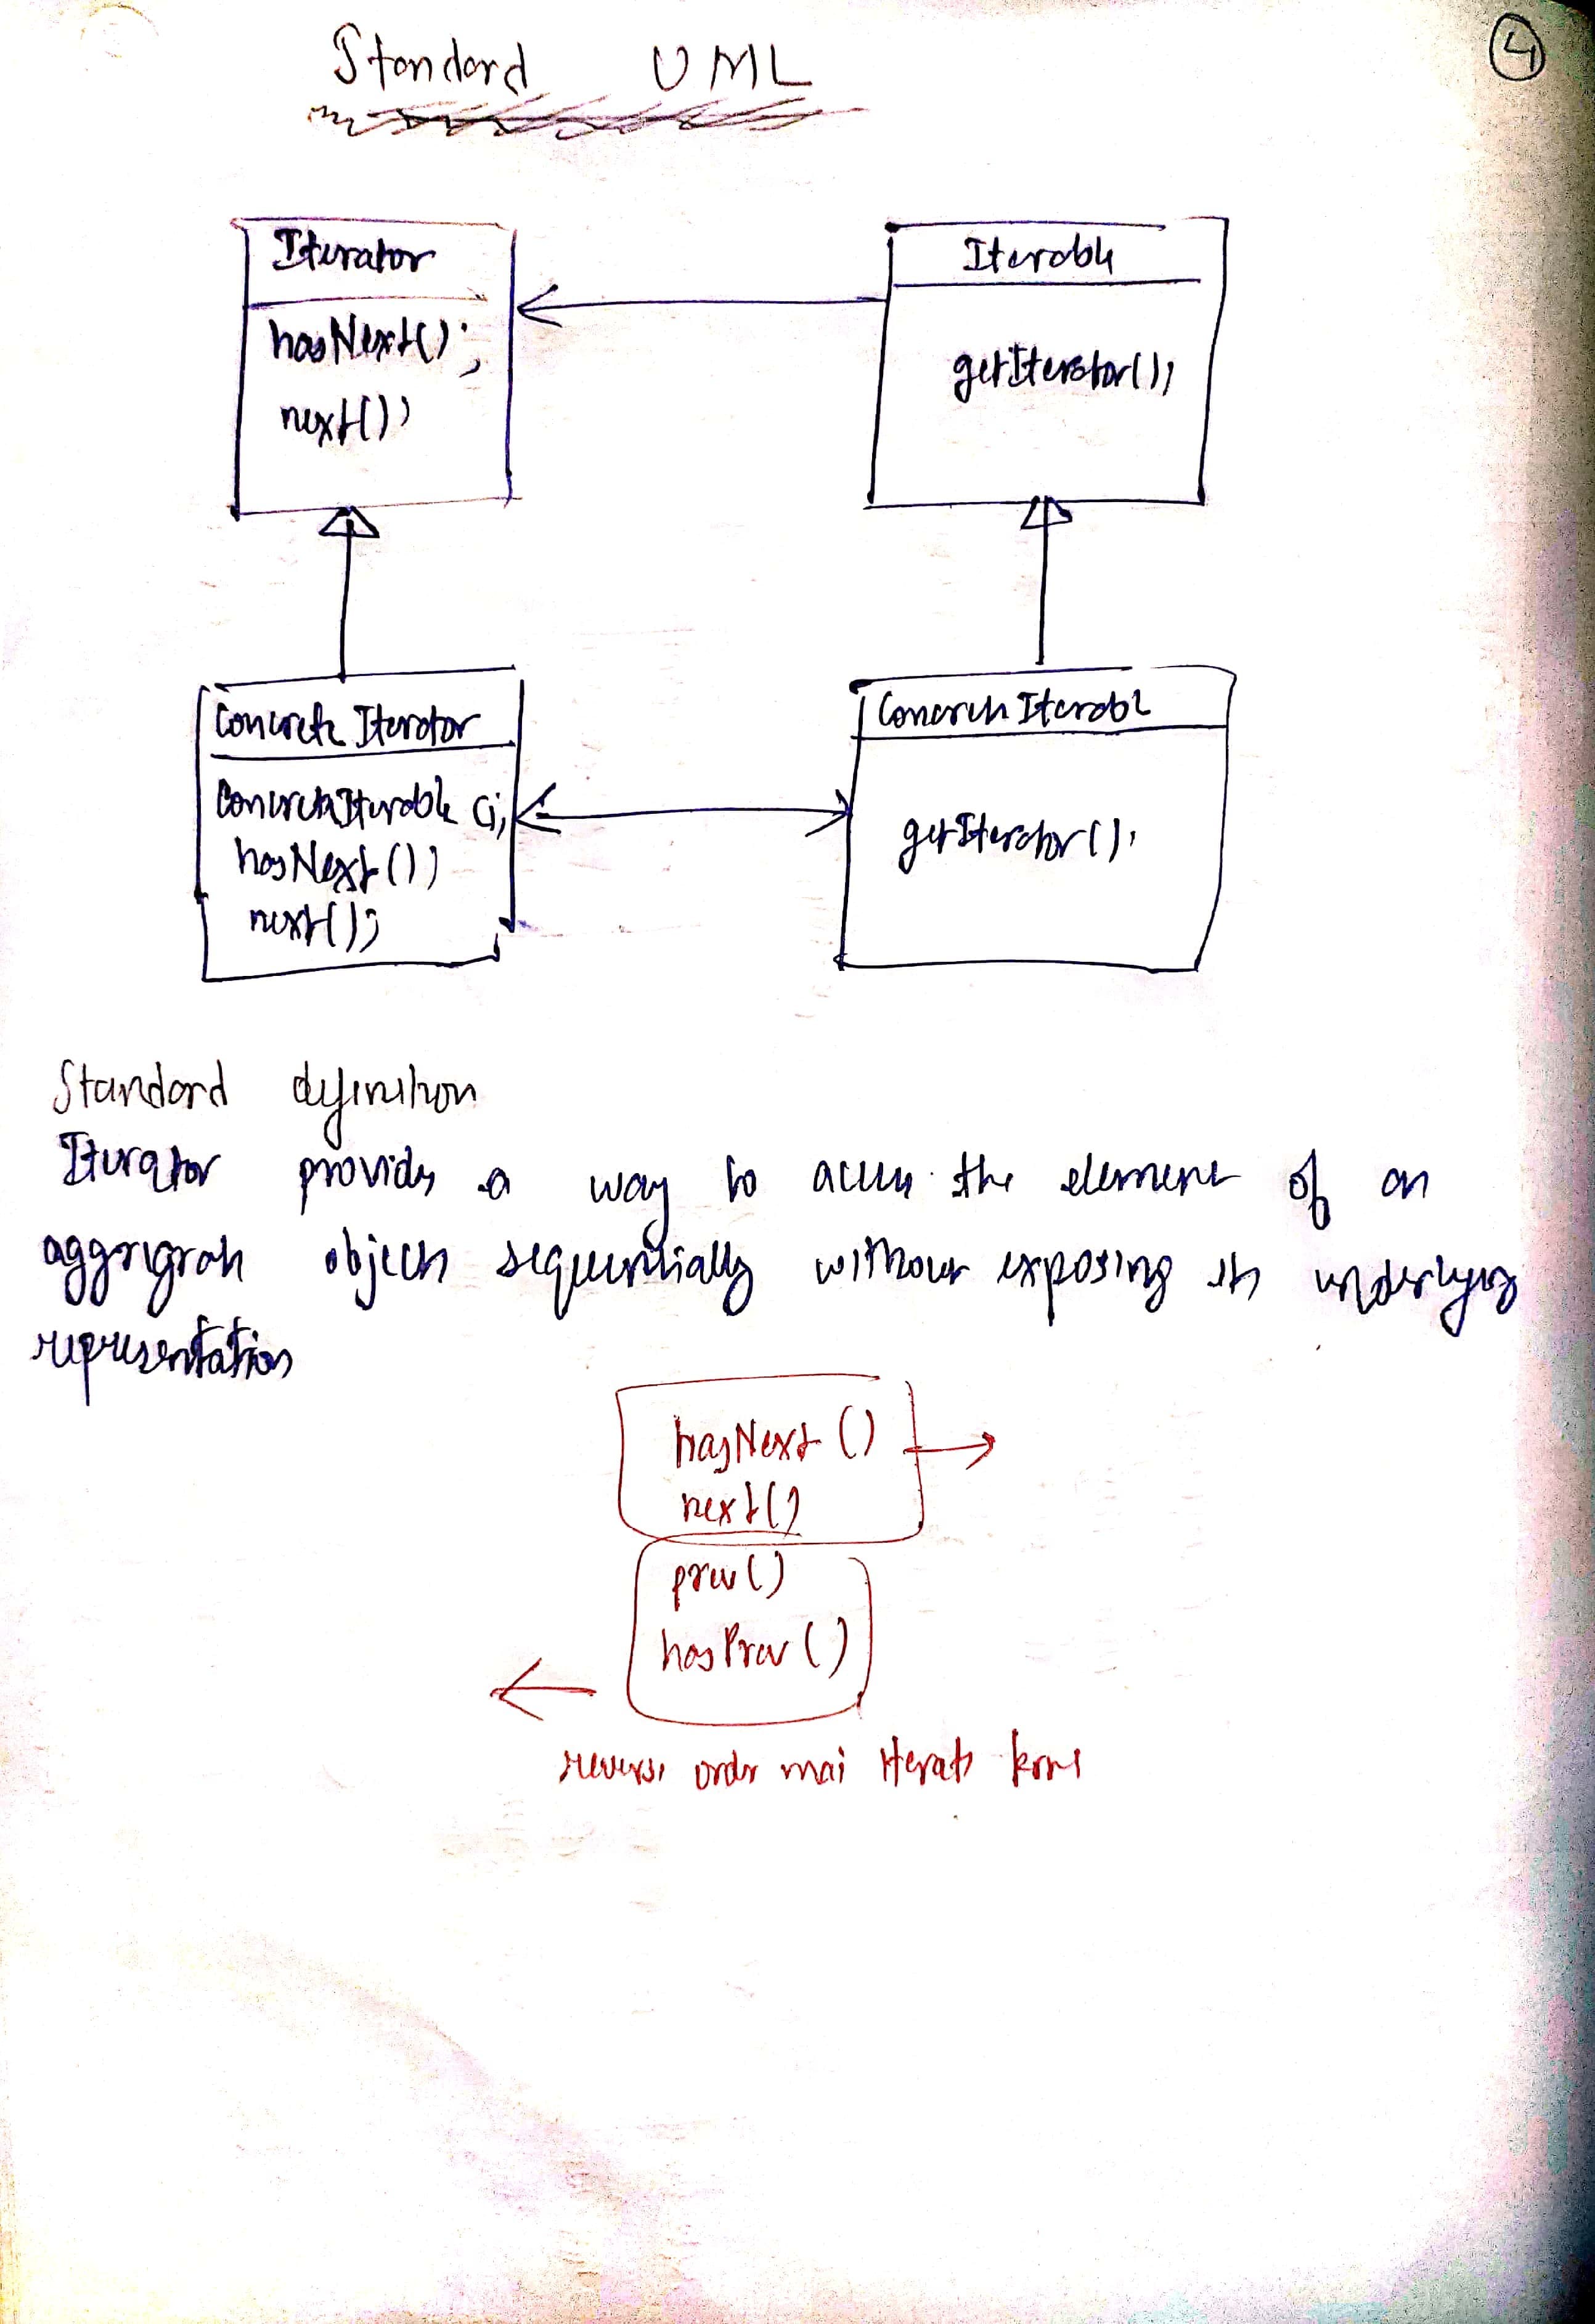 4
Standard UML
Iterator
hasNext();
next();
Iterable
getIterator();
Concrete Iterator
Concrete Iterable ci;
hasNext();
next();
Concrete Iterable
getIterator();
Standard definition
Iterator provides a way to access the element of an
aggregate object sequentially without exposing its underlying
representation
hasNext()
next()
prev()
hasPrev()
reverse order mai iterate karne